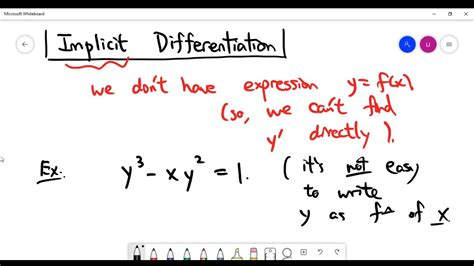 Microsoft Whiteboard
Implicit Differentiation
we don't have expression y = f(x)
(so, we can't find
y' directly).
Ex: y³ - xy² = 1. (it's not easy
to write
y as fn of x